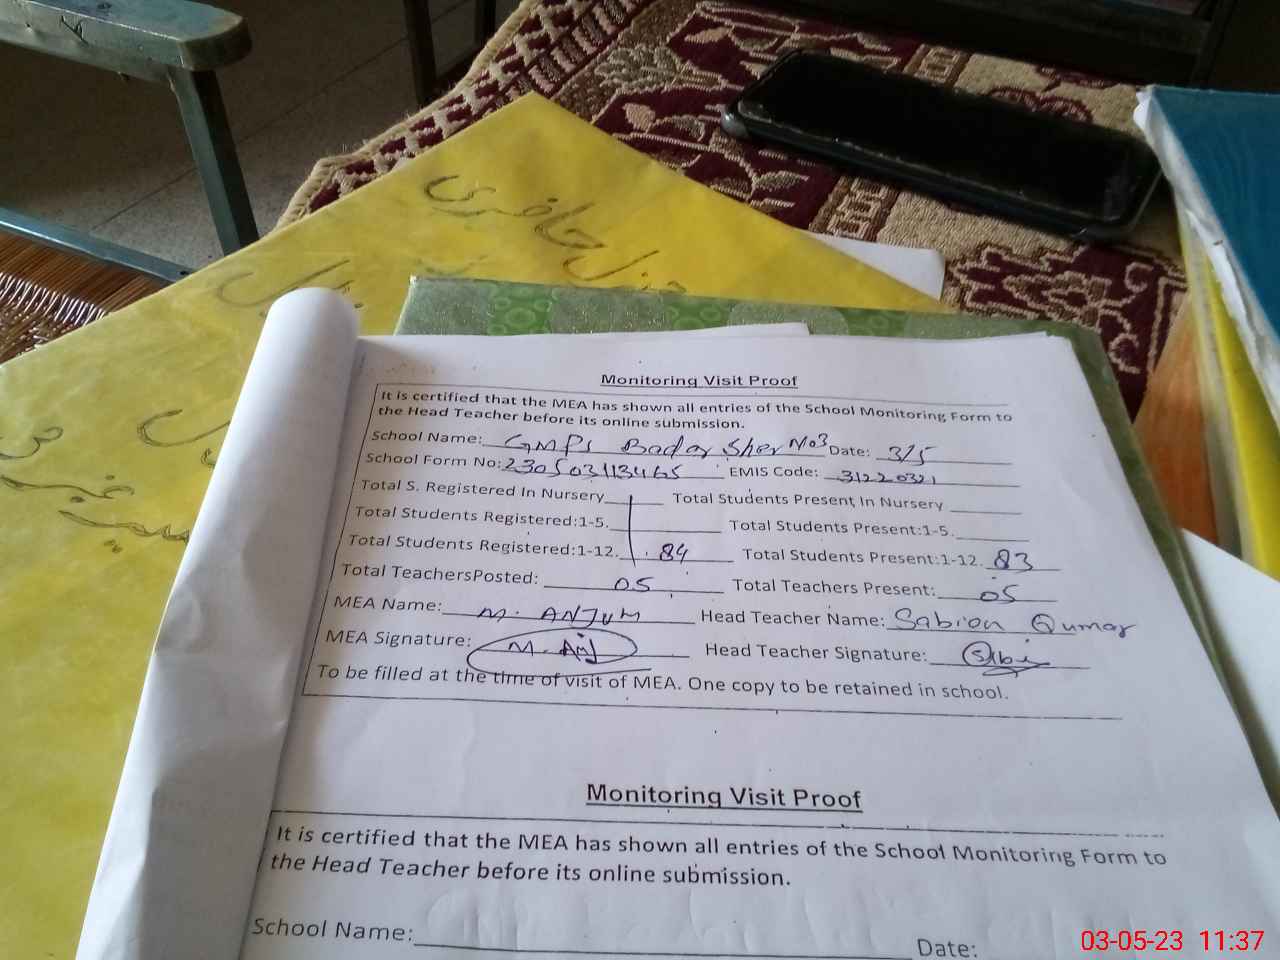 حاضری
Monitoring Visit Proof
It is certified that the MEA has shown all entries of the School Monitoring Form to
the Head Teacher before its online submission.
School Name: GMPS Badar Sher No3 Date: 3/5
School Form No: 230503113465 EMIS Code: 31220321
Total S. Registered In Nursery Total Students Present In Nursery
Total Students Registered:1-5. Total Students Present:1-5.
Total Students Registered:1-12. 84 Total Students Present:1-12. 83
Total TeachersPosted: 05 Total Teachers Present: 05
MEA Name: M. ANJUM Head Teacher Name: Qumar
MEA Signature: M. ANJ Head Teacher Signature:
To be filled at the time of visit of MEA. One copy to be retained in school.
Monitoring Visit Proof
It is certified that the MEA has shown all entries of the School Monitoring Form to
the Head Teacher before its online submission.
School Name: Date:
03-05-23 11:37